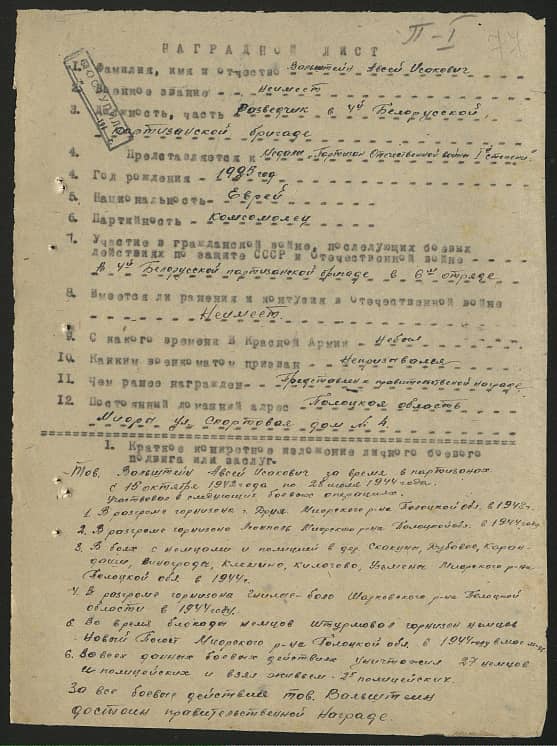 П-I
74
НАГРАДНОЙ ЛИСТ
1. Фамилия, имя и отчество Вальштейн Авсей Исакович
2. Военное звание Неимеет
3. Должность, часть Разведчик в 4й Белорусской
партизанской бригаде
4. Представляется к Медали "Партизан Отечественной войны 1й степени"
4. Год рождения - 1925 год
5. Национальность - Еврей
6. Партийность - Комсомолец
7. Участие в гражданской войне, последующих боевых
действиях по защите СССР и Отечественной войне
В 4й Белорусской партизанской бригаде в 6м отряде
8. Имеется ли ранения и контузия в Отечественной войне
Неимеет.
9. С какого времени В Красной Армии - Небыл
10. Каким военкоматом призван - Непризывался
11. Чем ранее награжден - Представлен к правительственной награде
12. Постоянный домашний адрес Полоцкая область
Миоры ул. Спортовая дом № 4.
1. Краткое конкретное изложение личного боевого
подвига или заслуг.
Тов. Вальштейн Авсей Исакович за время в партизанах
с 15 октября 1942 года по 28 июня 1944 года.
Участвовал в следующих боевых операциях.
1. В разгроме гарнизона г. Друя Миорского р-на Полоцкой обл. в 1943г.
2. В разгроме гарнизона Леонполь Миорского р-на Полоцкой обл. в 1944 году.
3. В боях с немцами и полицией в дер.
Миорского р-на
Полоцкой обл. в 1944г.
4. В разгроме гарнизона Шарковского р-на Полоцкой
области в 1944 году.
5. Во время блокады немцев штурмовал гарнизон немцев
Новый Погост Миорского р-на Полоцкой обл. в 1944 году
6. Во всех данных боевых действиях уничтожил 27 немцев
и полицейских и взял живьем полицейских.
За все боевые действия тов. Вальштейн
достоин правительственной Награде.